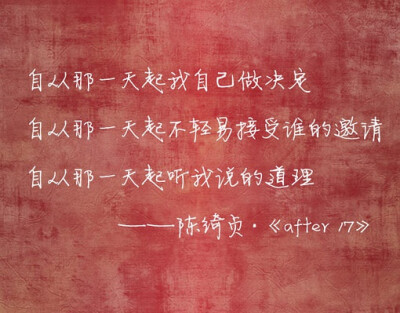 自从那一天起我自己做决定
自从那一天起不轻易接受谁的邀请
自从那一天起听我说的道理
——陈绮贞·《after 17》